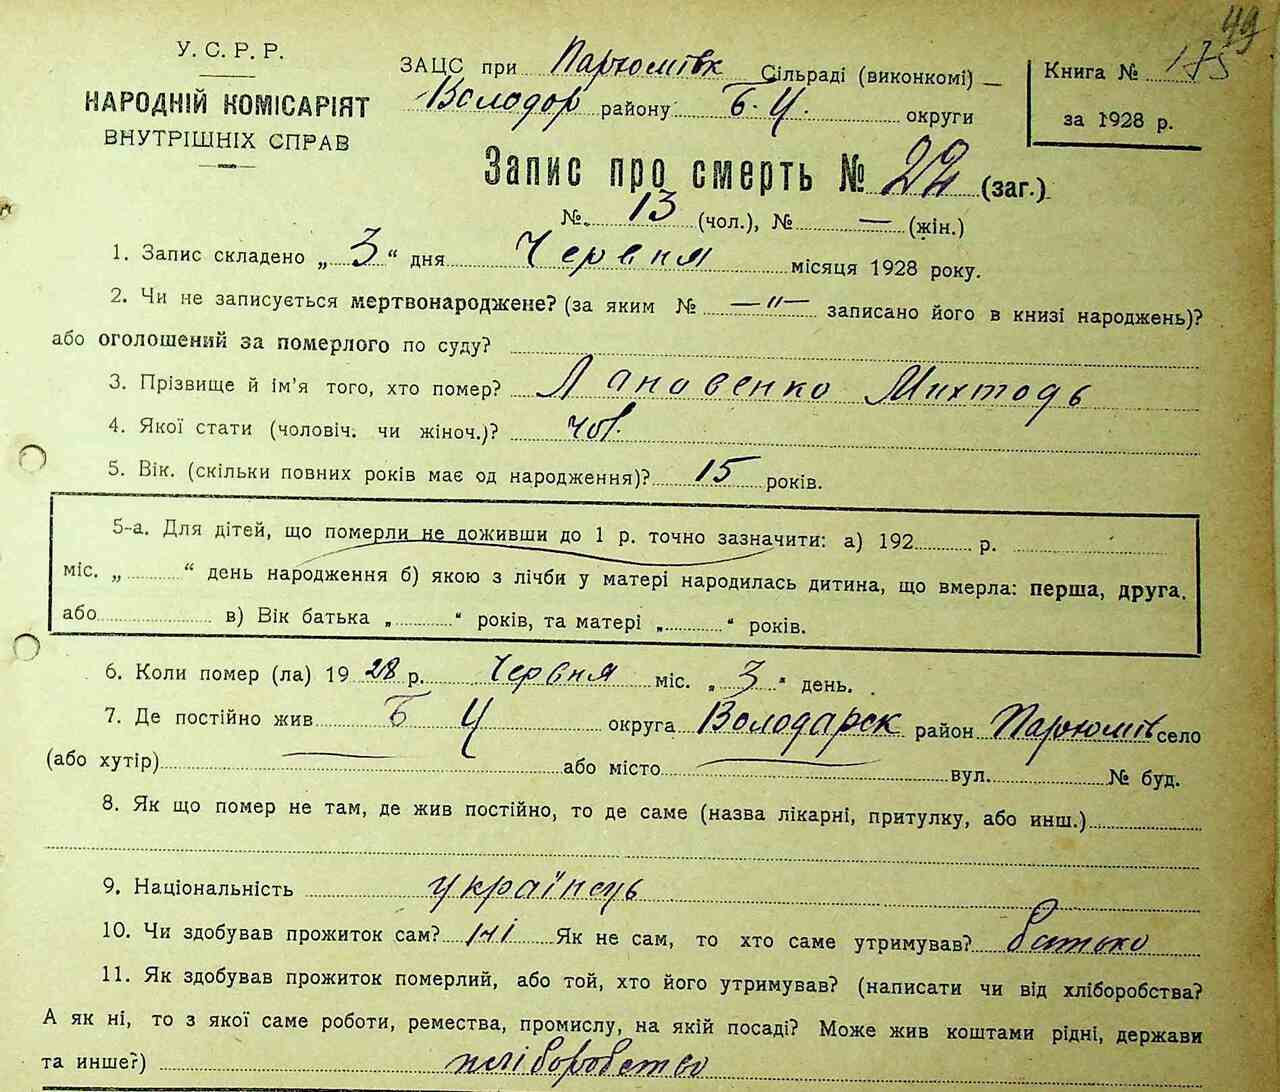 49
У. С. Р. Р.
НАРОДНІЙ КОМІСАРІЯТ
ВНУТРІШНІХ СПРАВ
ЗАЦС при Пархомівк Сільраді (виконкомі) —
Володор району Б. Ц. округи
Книга № 175
за 1928 р.
Запис про смерть № 22 (заг.)
№ 13 (чол.), № — (жін.)
1. Запис складено „ 3 “ дня Червня місяця 1928 року.
2. Чи не записується мертвонароджене? (за яким № —"— записано його в книзі народжень)?
або оголошений за померлого по суду?
3. Прізвище й ім’я того, хто помер? Лановенко Михтодь
4. Якої стати (чоловіч. чи жіноч.)? чол.
5. Вік. (скільки повних років має од народження)? 15 років.
5-а. Для дітей, що померли не доживши до 1 р. точно зазначити: а) 192 р.
міс. „ “ день народження б) якою з лічби у матері народилась дитина, що вмерла: перша, друга,
або в) Вік батька „ “ років, та матері „ “ років.
6. Коли помер (ла) 19 28 р. Червня міс. „ 3 “ день.
7. Де постійно жив Б Ц округа Володарск район Пархомів село
(або хутір) або місто вул. № буд.
8. Як що помер не там, де жив постійно, то де саме (назва лікарні, притулку, або инш.)
9. Національність українець
10. Чи здобував прожиток сам? ні Як не сам, то хто саме утримував? батько
11. Як здобував прожиток померлий, або той, хто його утримував? (написати чи від хліборобства?
А як ні, то з якої саме роботи, ремества, промислу, на якій посаді? Може жив коштами рідні, держави
та инше?) хліборобство